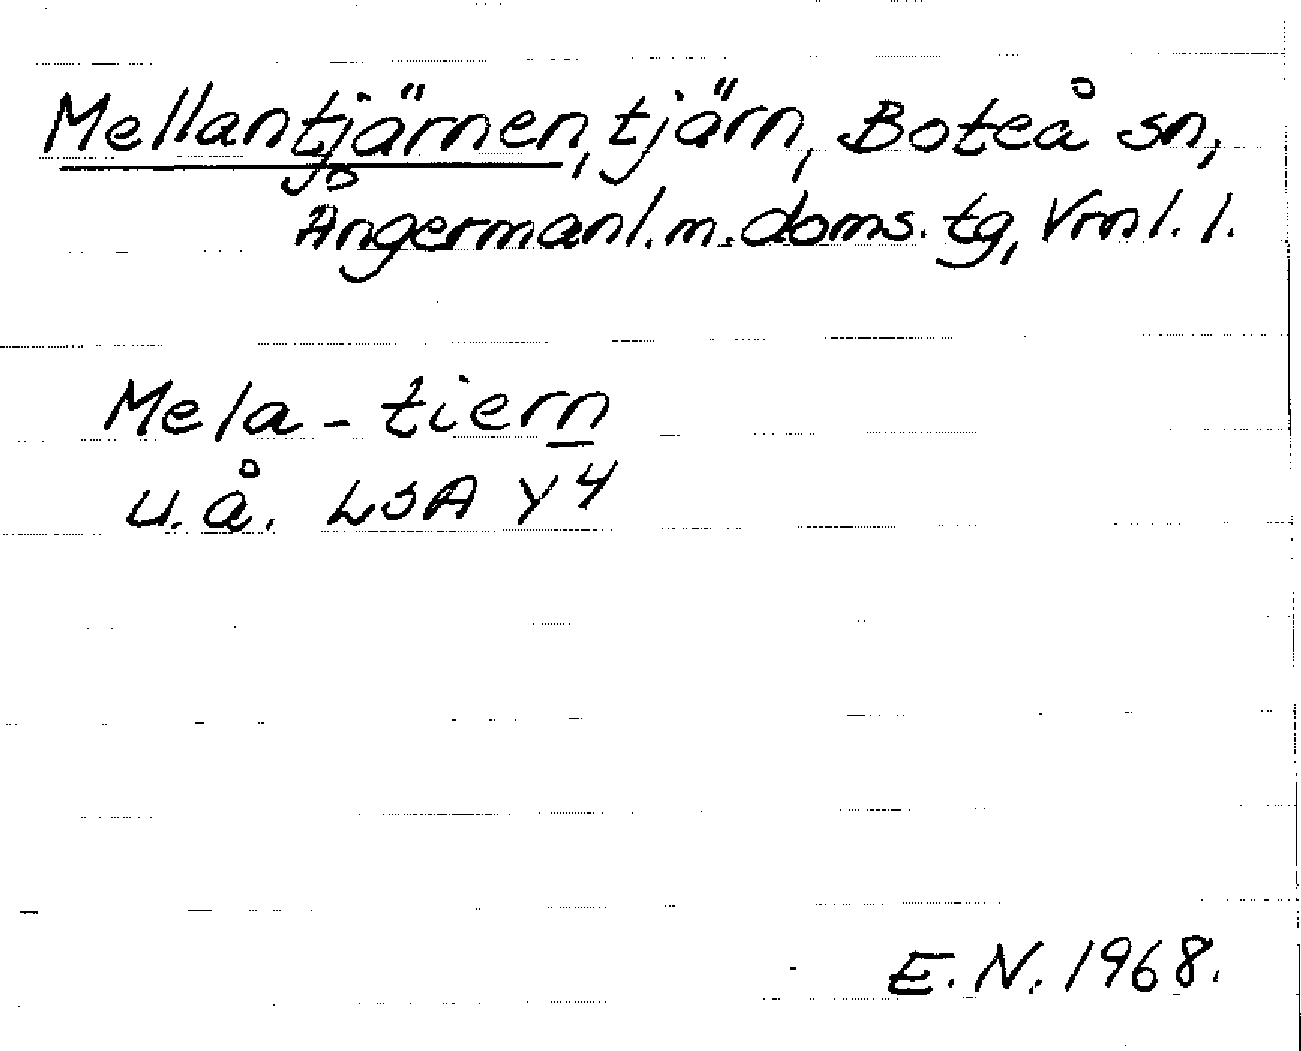 Mellantjärnen, tjärn, Boteå sn,
Ångermanl. m. doms. tg, Vrnl. l.
Mela - tiern
u. å. LSA Y4
E. N. 1968.